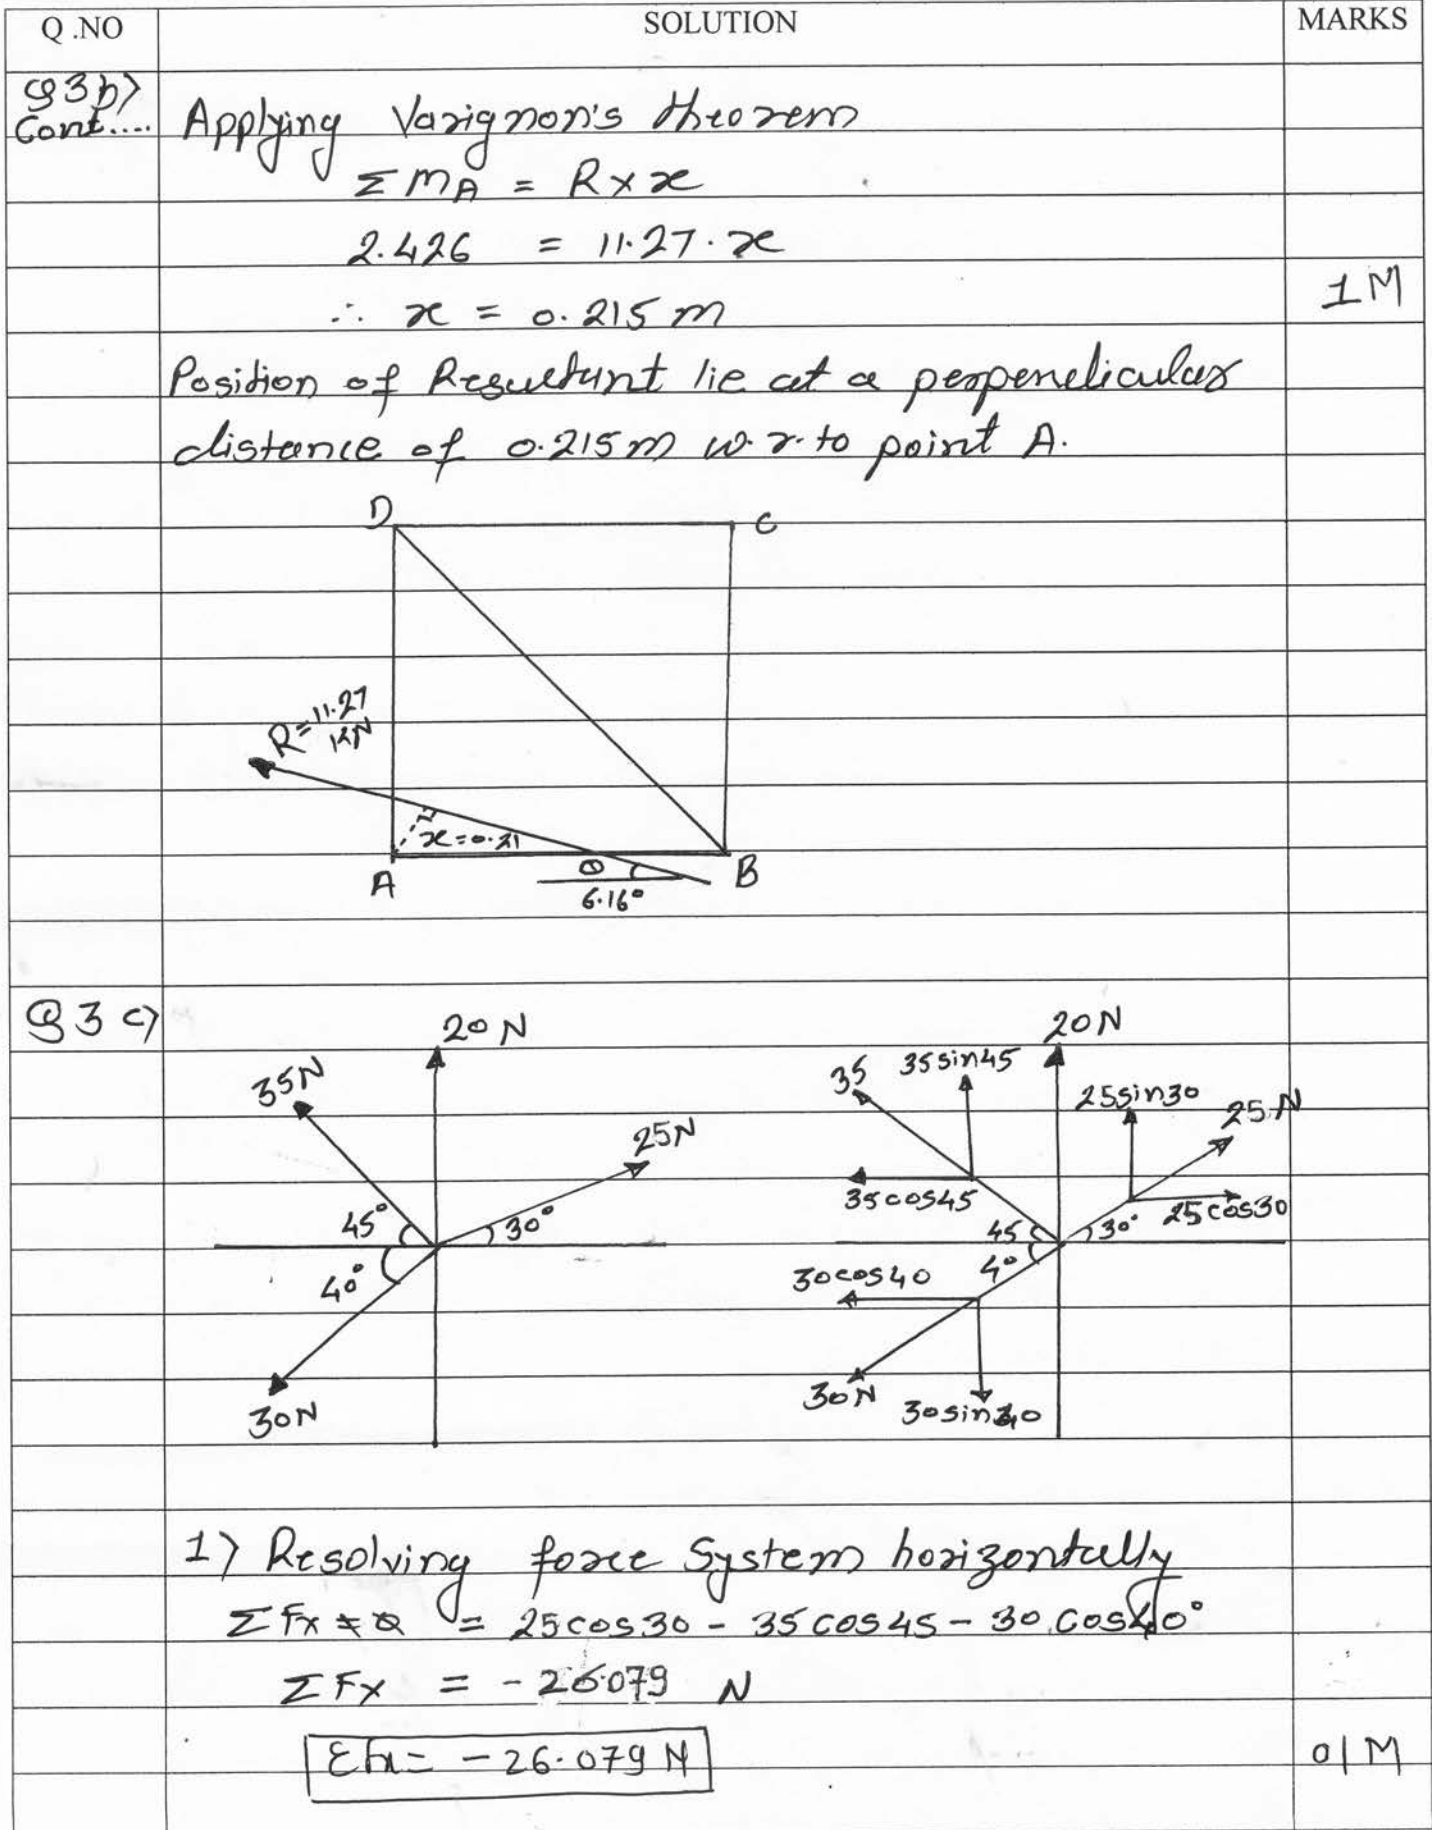 Q .NO SOLUTION MARKS
Q3b)
Cont.... Applying Varignon's theorem
ΣMA = R×x
2.426 = 11.27.x
∴ x = 0.215 m 1M
Position of Resultant lie at a perpendicular
distance of 0.215m w.r.to point A.
D C
R=11.27
KN
x=0.21
A B
θ
6.16°
Q3 c)
20N
35N
25N
45°
30°
40°
30N
20N
35
35sin45
25sin30
25N
35cos45
25cos30
45
30°
4°
30cos40
30N
30sin40
1) Resolving force System horizontally
ΣFx = 25cos30 - 35cos45 - 30.cos40°
ΣFx = -26.079 N
Σfx= -26.079 N 01M